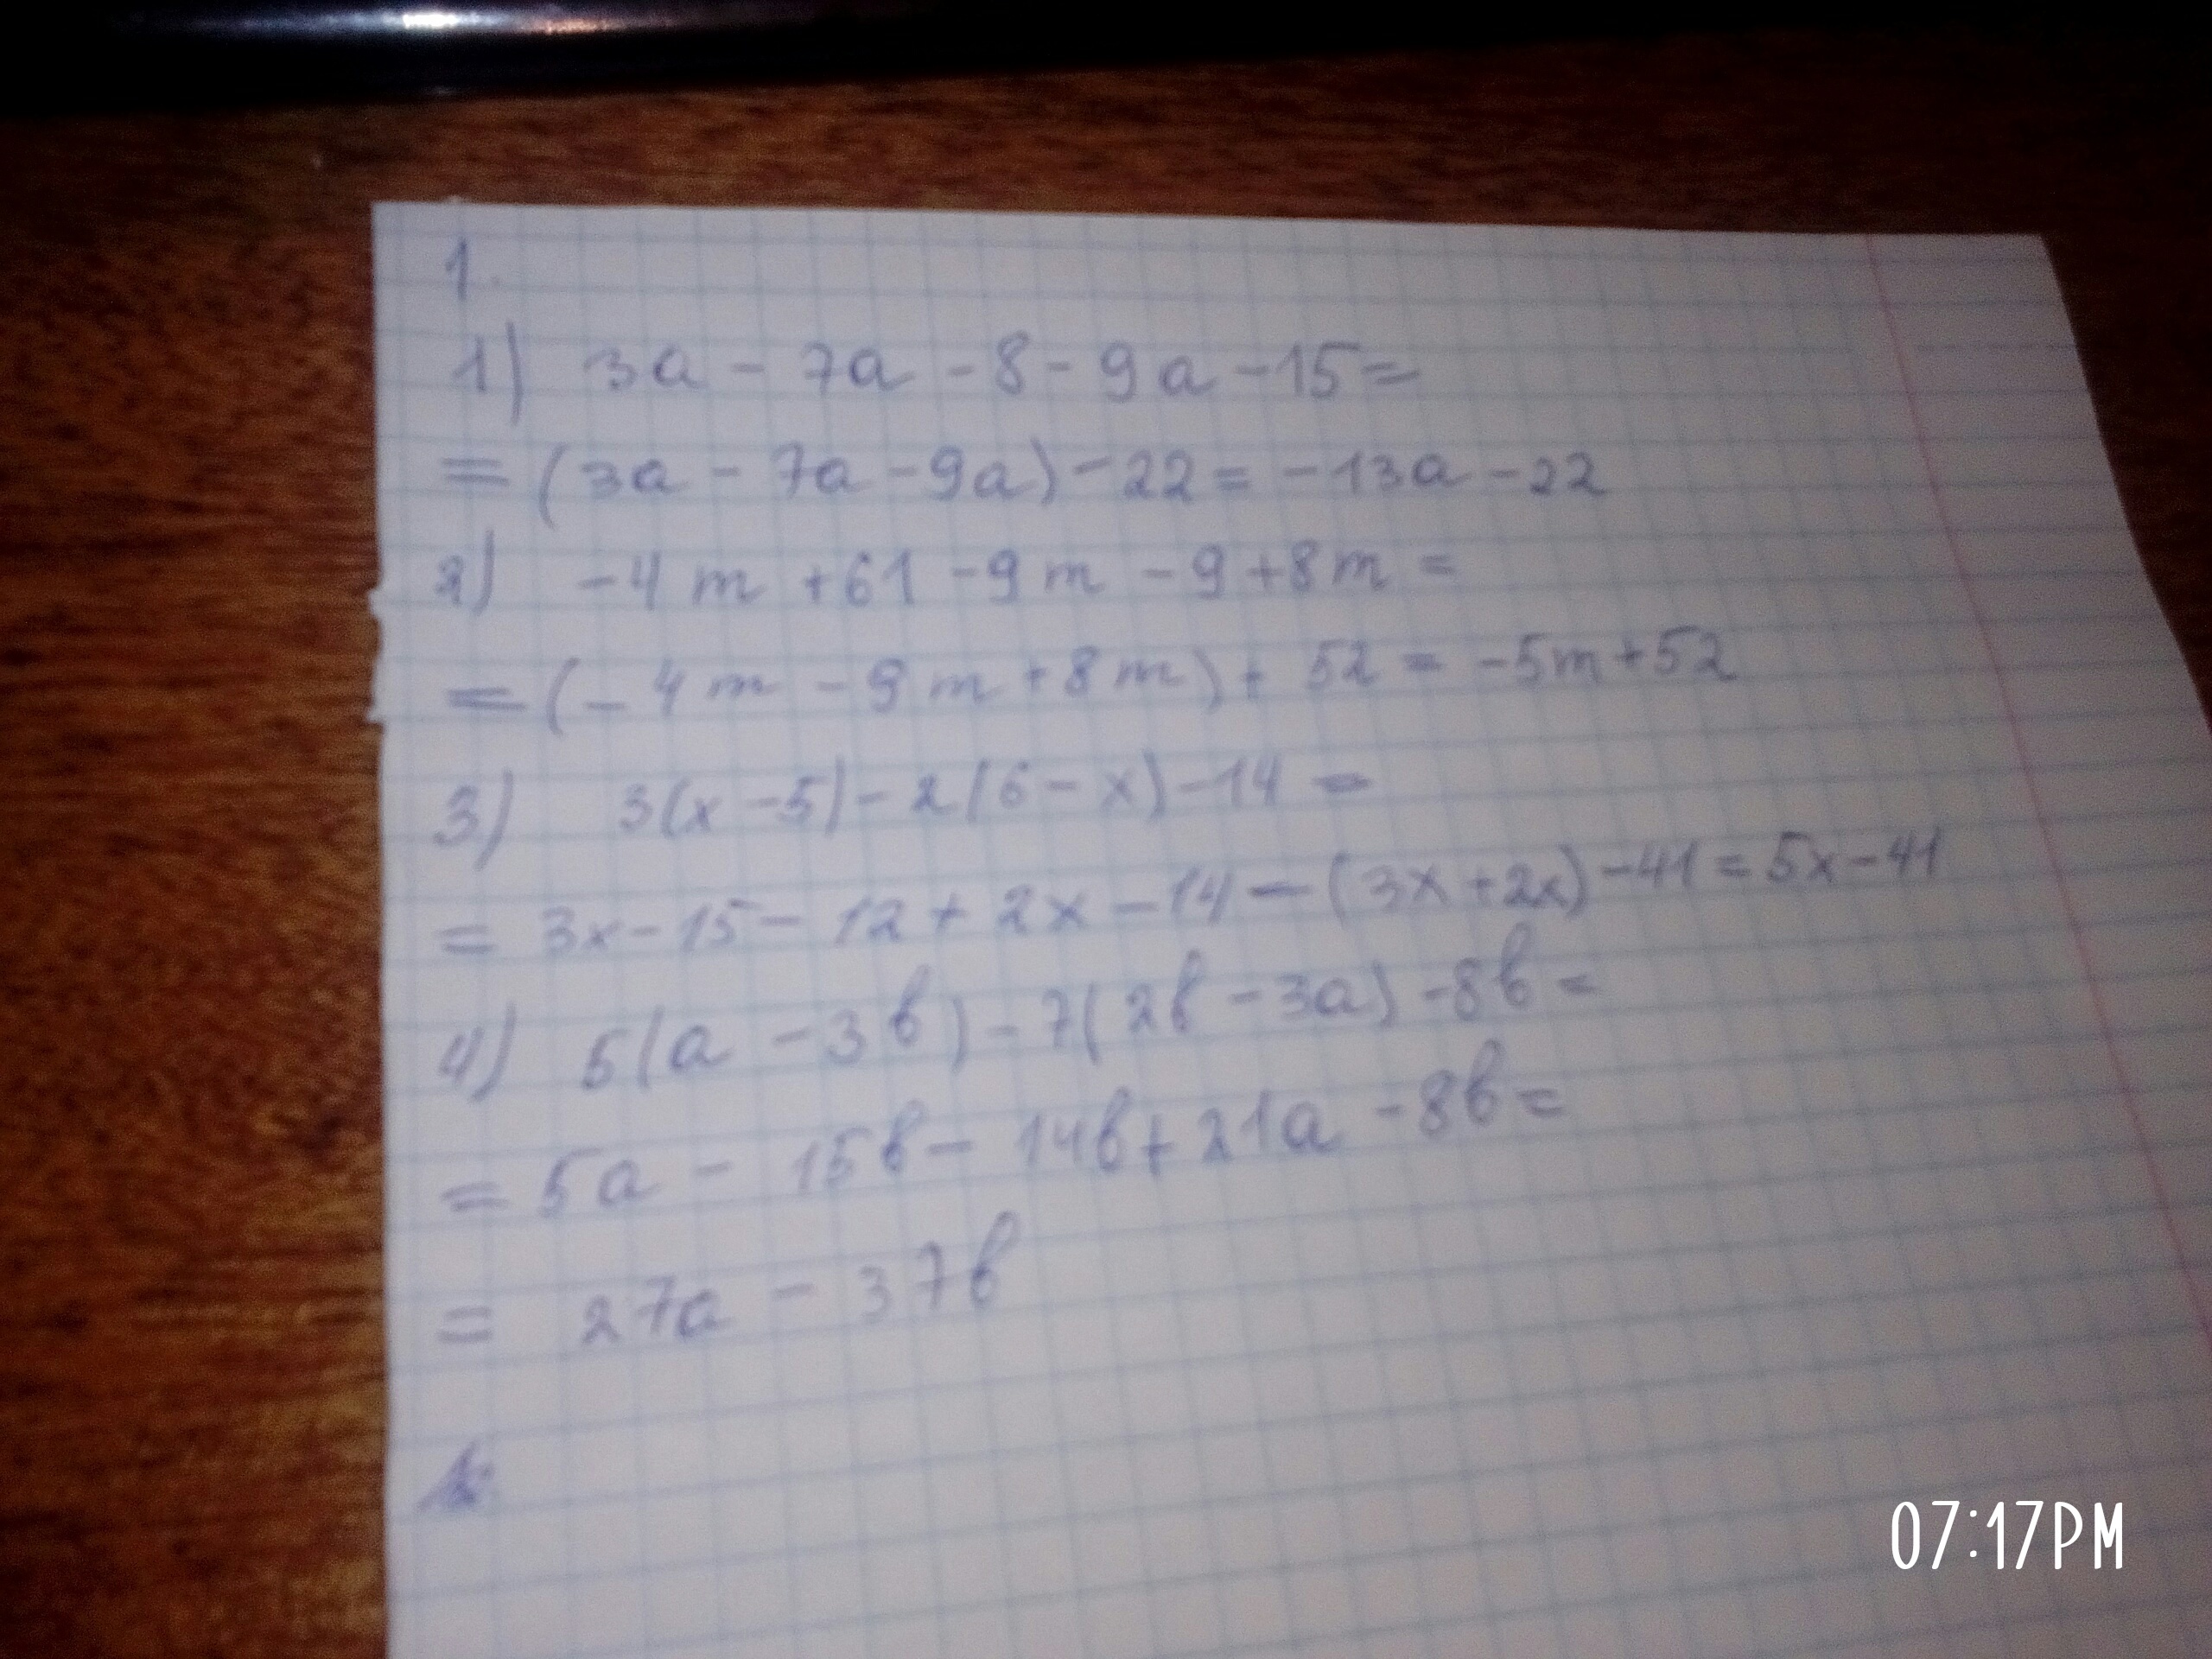 1.
1) 3a - 7a - 8 - 9a - 15 =
= (3a - 7a - 9a) - 22 = -13a - 22
2) -4m + 61 - 9m - 9 + 8m =
= (-4m - 9m + 8m) + 52 = -5m + 52
3) 3(x - 5) - 2(6 - x) - 14 =
= 3x - 15 - 12 + 2x - 14 = (3x + 2x) - 41 = 5x - 41
4) 5(a - 3b) - 7(2b - 3a) - 8b =
= 5a - 15b - 14b + 21a - 8b =
= 27a - 37b
07:17PM